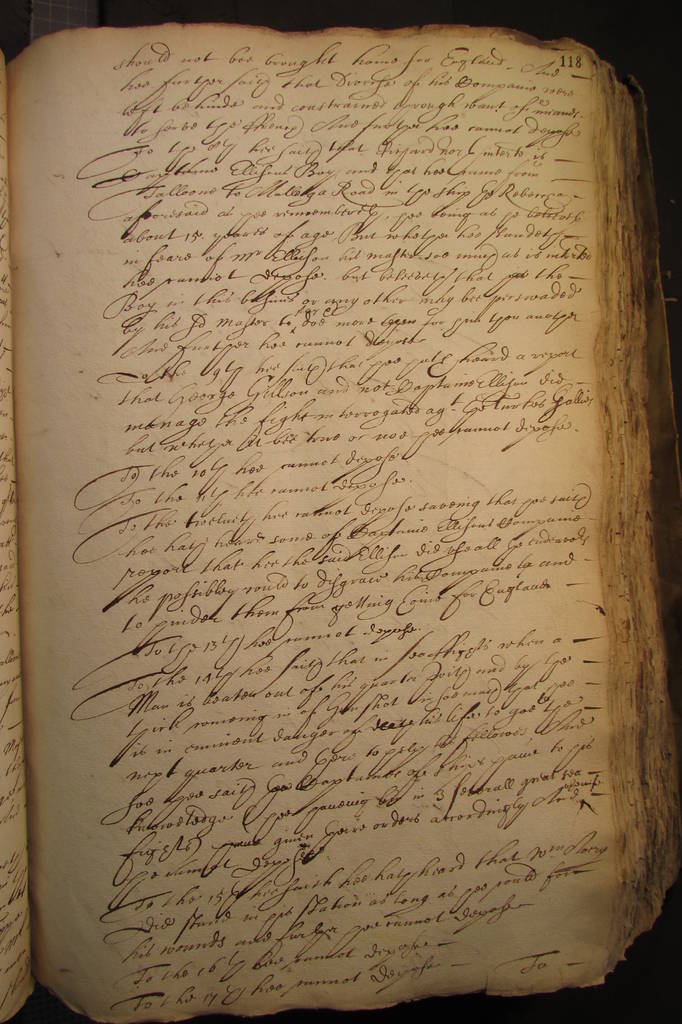 118
should not bee brought home for England. And
hee further saith that Diverse of his Companie were
left behinde and constrained through want of meanes
to serve the ffrench And further hee cannot depose
To the 8th hee saith that Richard interr is
Captaine Ellisons Boy, and that hee came from
Salloone to Mallega Road in the ship the Rebecca
aforesaid as hee remembreth, hee being as he beleeveth
about 15 yeares of age, But whether hee standeth
in feare of Mr Ellison his master soe much as is interr
hee cannot depose. but beleeveth that the
Boy in this busines or any other may bee perswaded
by his sd Master to doe more then for another
And further hee cannot depose
To the 9th hee saith that hee hath heard a report
that George Gibson and not Captaine Ellison did
menage the fight interrogated agt. the Turkes Gallies
but whether it bee true or noe hee cannot depose.
To the 10th hee cannot depose
To the 11th hee cannot depose.
To the twelueth hee cannot depose saveing that hee saith
hee hath heard some of Captaine Ellisons Companie
report that hee the said Ellison did use all the endeavors
he possibley could to disgrace his Companie and
to hinder them from getting home for England
To the 13th hee cannot depose.
To the 14th hee saith that in seaffights when a
Man is beaten out of his quarter with and by the
thick comeing in of shot in soe much that hee
is in eminent danger of his life to goe to the
next quarter and there to help his fellowes, And
soe hee saith the Captaines of shipps have to his
knowledge (hee haveing bin in 3 severall great sea
fights) have given theire orders accordingly And
he cannot depose
To the 15th hee saith hee hath heard that Wm
did stand in his station as long as hee could for
his wounds and further hee cannot depose
To the 16th hee cannot depose
To the 17th hee cannot depose
To